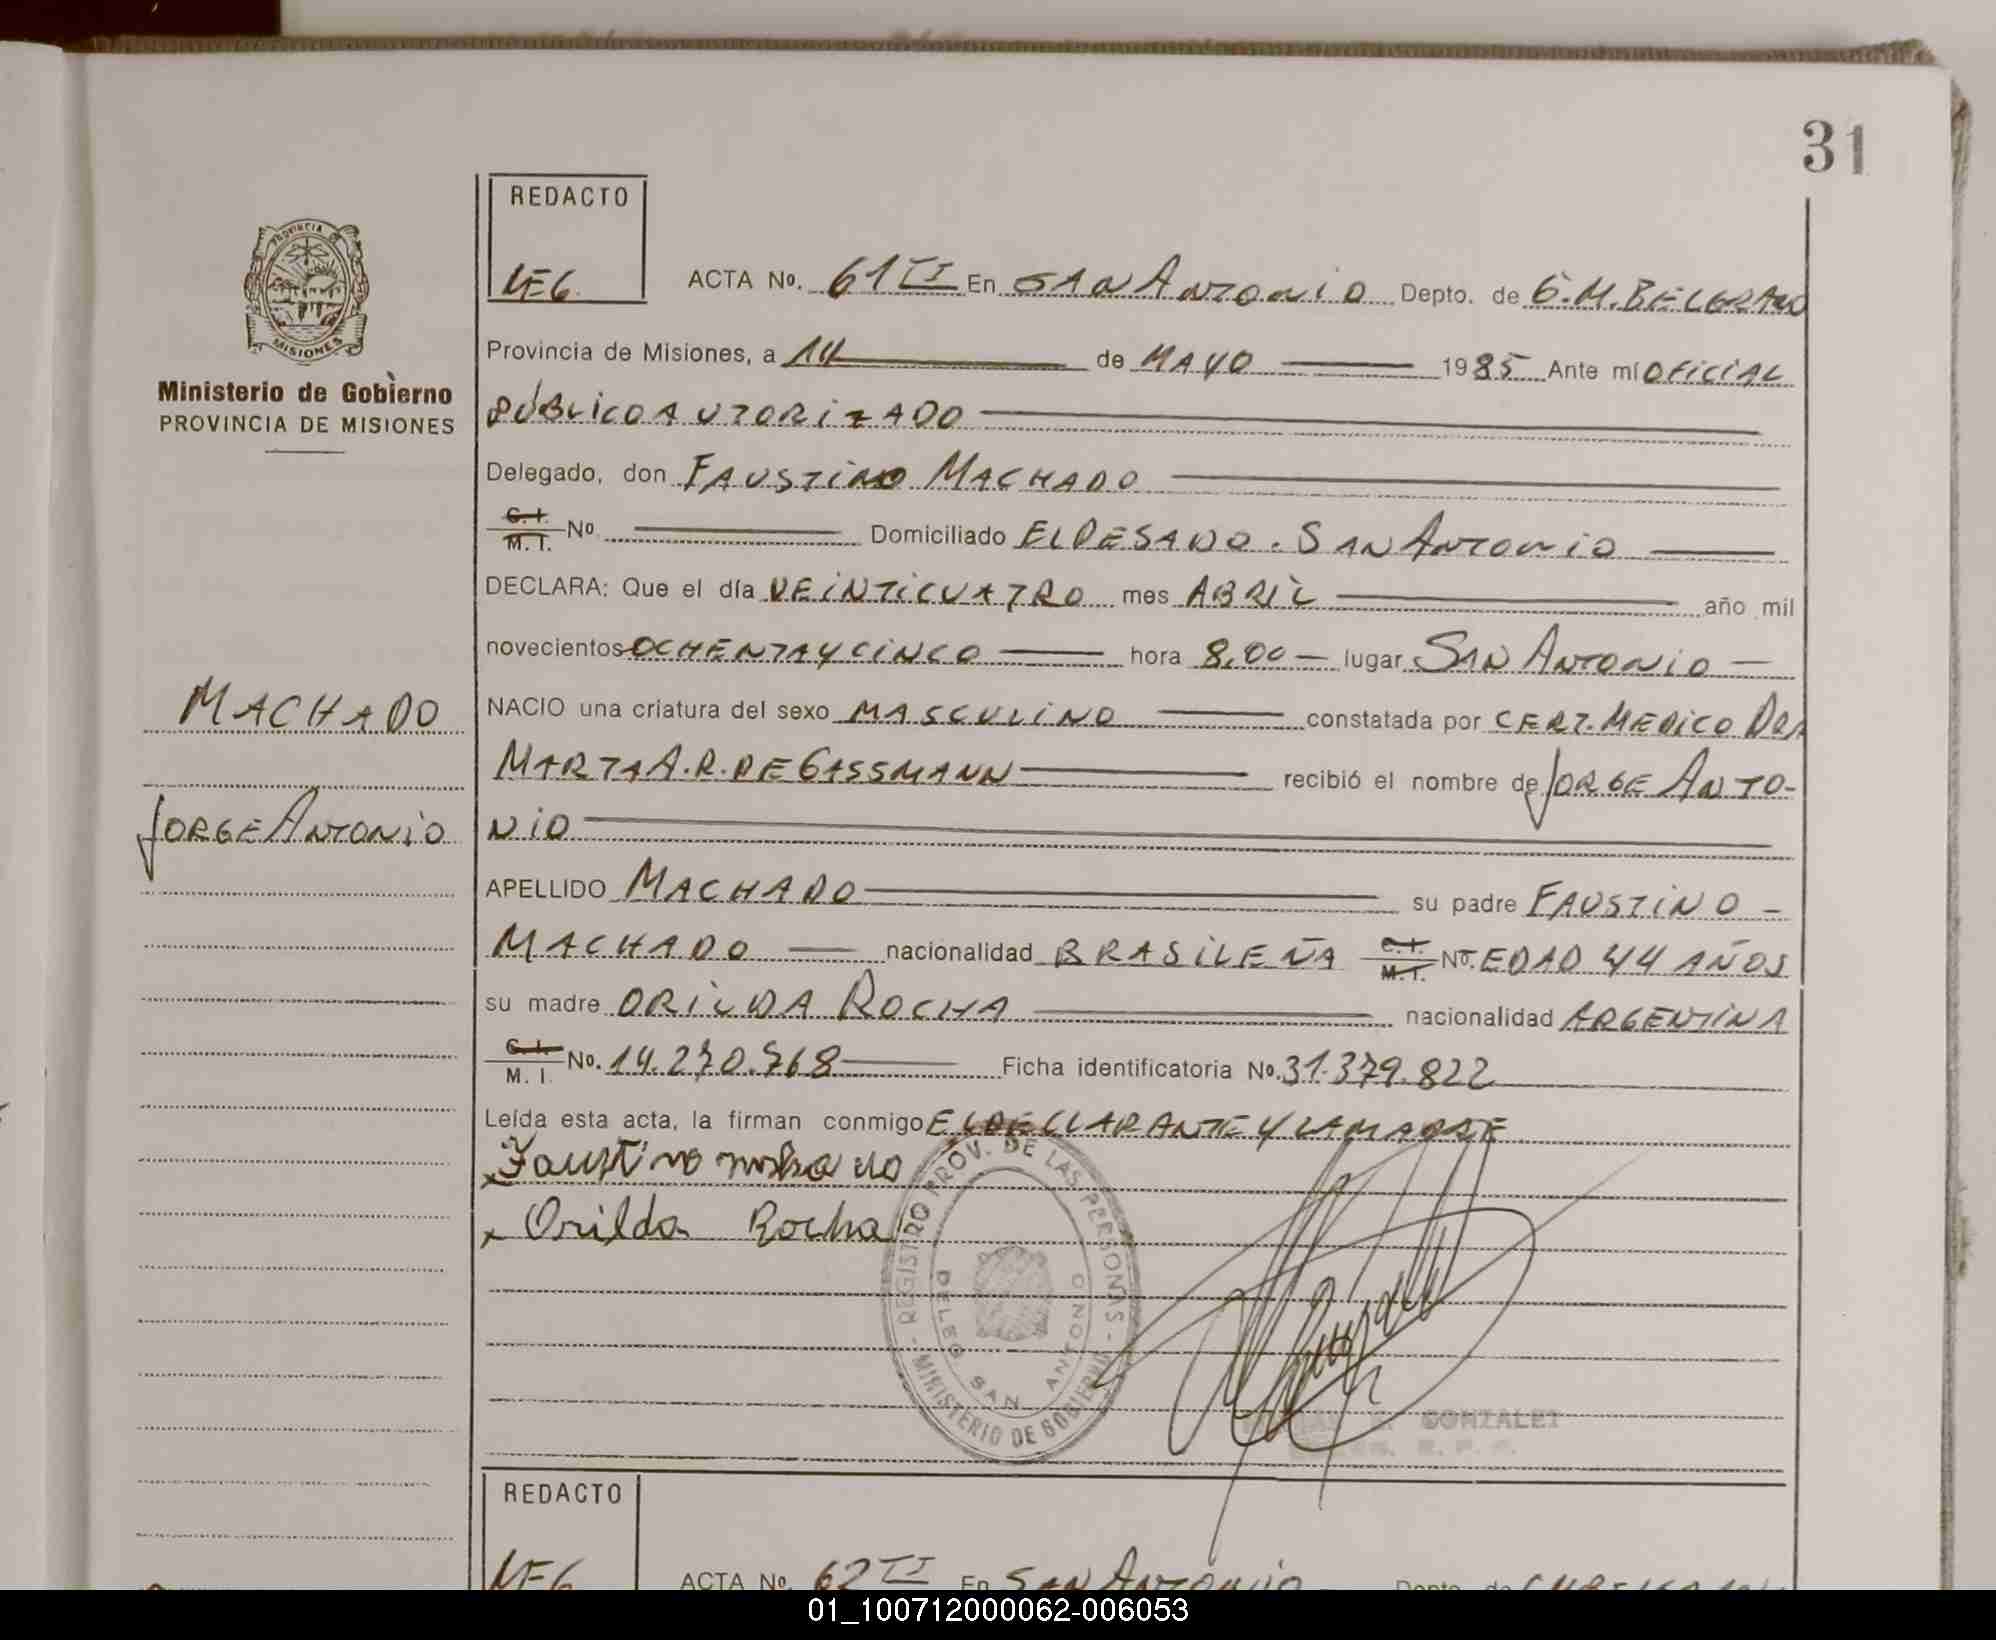 31
REDACTO
ACTA Nº. 61 TI En SAN ANTONIO Depto. de G.M. BELGRANO
PROVINCIA DE MISIONES
Ministerio de Gobierno
PROVINCIA DE MISIONES
Provincia de Misiones, a 14 de MAYO 1985 Ante mí OFICIAL
PÚBLICO AUTORIZADO
Delegado, don FAUSTINO MACHADO
C. I. / M. I. Nº. Domiciliado EL DESADO. SAN ANTONIO
DECLARA: Que el día VEINTICUATRO mes ABRIL año mil
novecientos OCHENTA Y CINCO hora 8,00 — lugar SAN ANTONIO —
MACHADO
NACIO una criatura del sexo MASCULINO constatada por CERT. MEDICO DRA
MARTA A. R. DE GASSMANN recibió el nombre de JORGE ANTO-
JORGE ANTONIO
NIO
APELLIDO MACHADO su padre FAUSTINO —
MACHADO nacionalidad BRASILEÑA C. I. / M. I. Nº. EDAD 44 AÑOS
su madre ORILDA ROCHA nacionalidad ARGENTINA
C. I. / M. I. Nº. 14.270.768 Ficha identificatoria Nº. 31.379.822
Leída esta acta, la firman conmigo EL DECLARANTE Y LA MADRE
x Orilda Rocha
REGISTRO PROV. DE LAS PERSONAS - MINISTERIO DE GOBIERNO -
DELEG SAN ANTONIO
GONZALEZ
REDACTO
ACTA Nº. 62 TI En SAN ANTONIO Depto. de
01_100712000062-006053